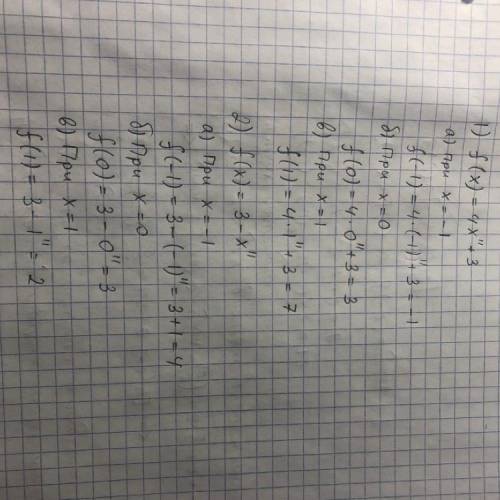 1) f(x) = 4x¹¹ + 3
а) При x = -1
f(-1) = 4·(-1)¹¹ + 3 = -1
б) При x = 0
f(0) = 4·0¹¹ + 3 = 3
в) При x = 1
f(1) = 4·1¹¹ + 3 = 7
2) f(x) = 3 - x¹¹
а) При x = -1
f(-1) = 3 - (-1)¹¹ = 3 + 1 = 4
б) При x = 0
f(0) = 3 - 0¹¹ = 3
в) При x = 1
f(1) = 3 - 1¹¹ = 2